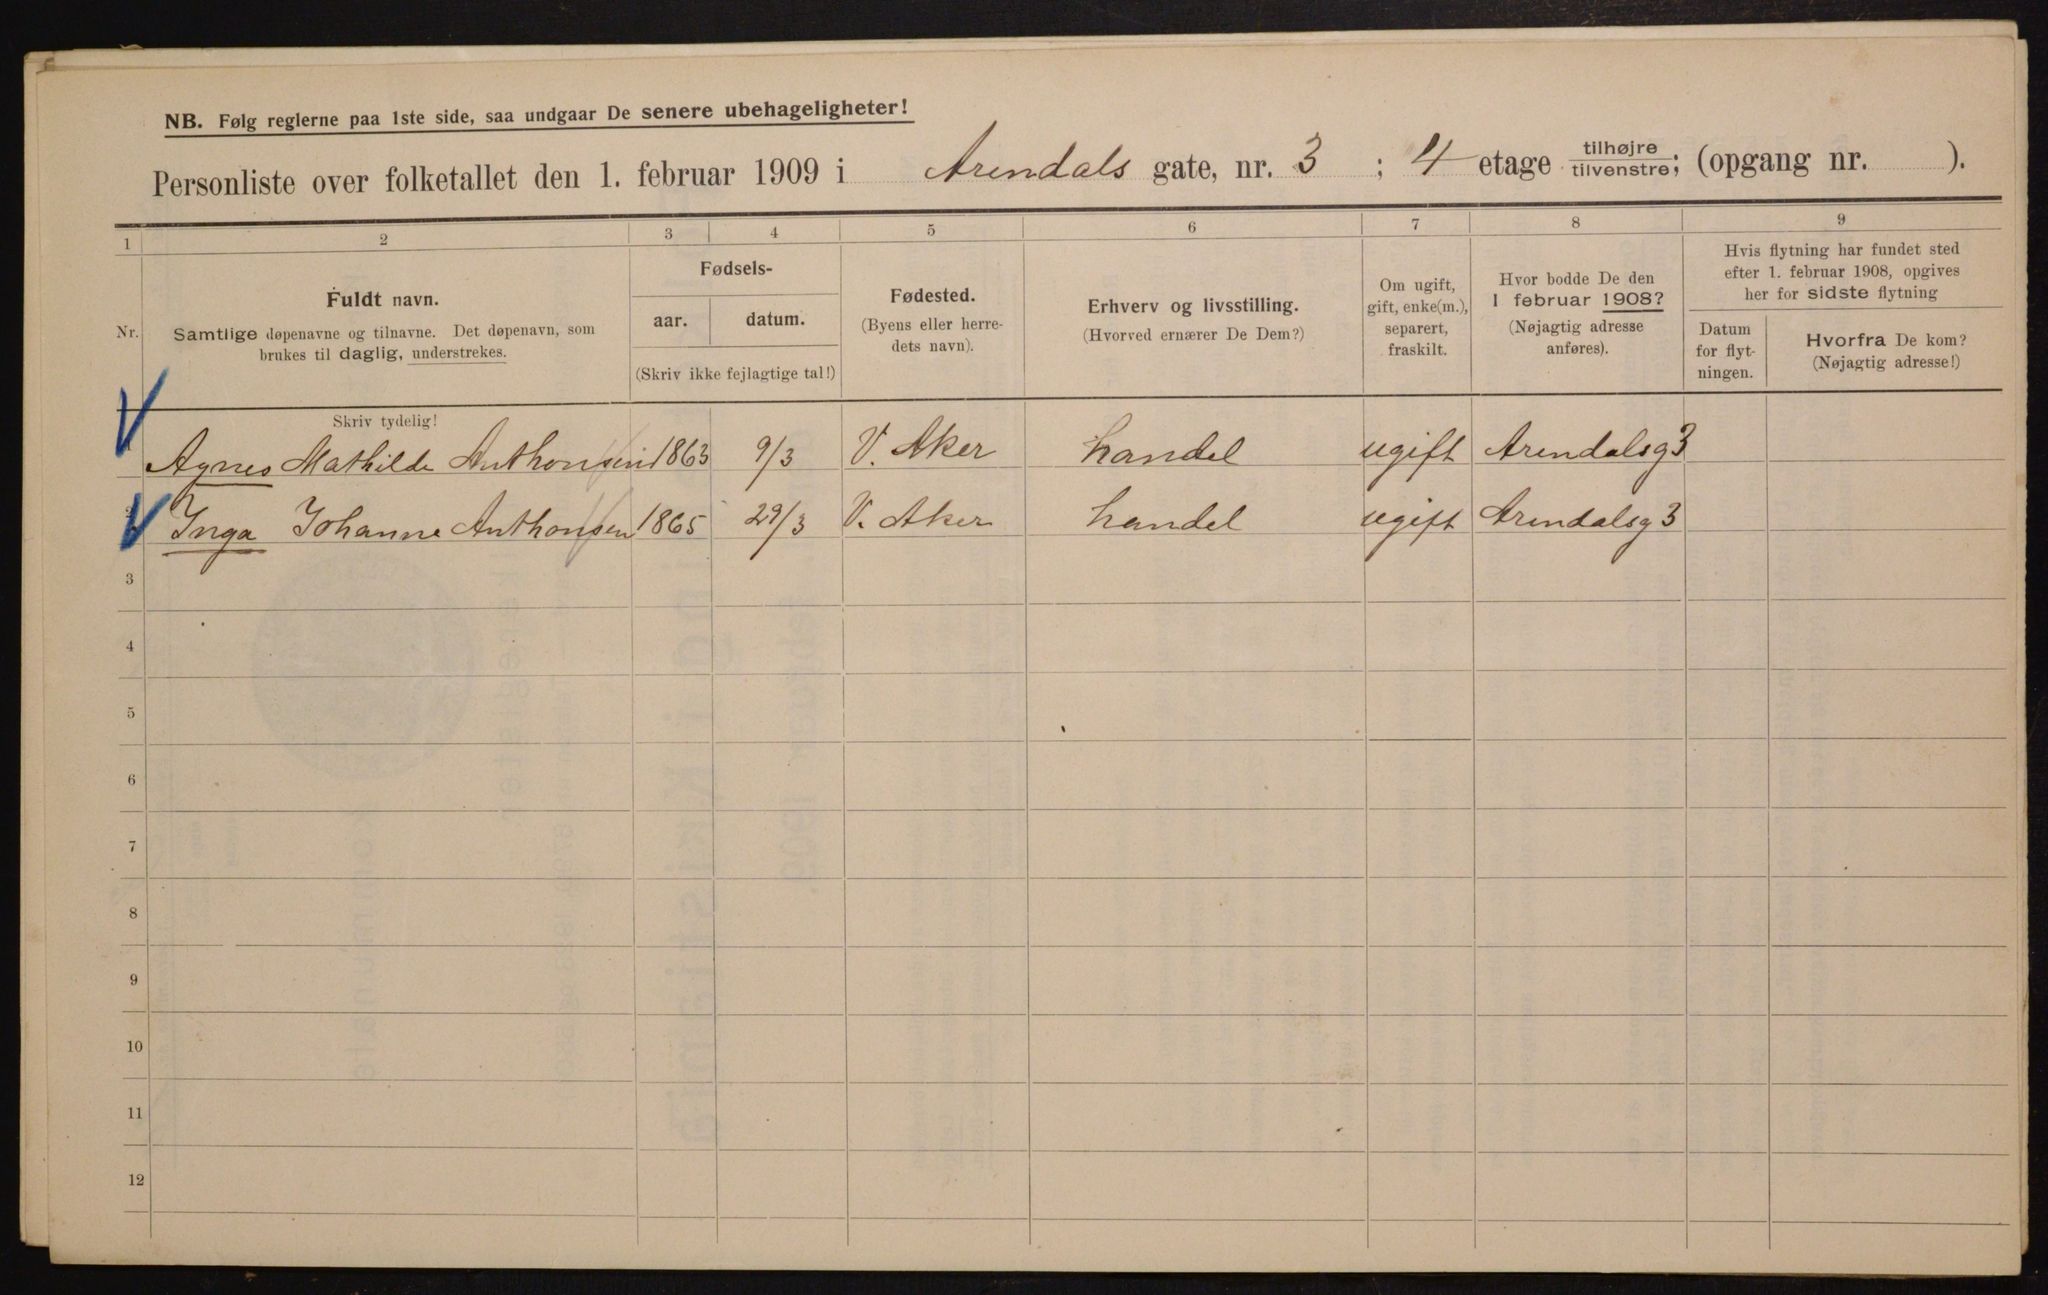 NB. Følg reglerne paa 1ste side, saa undgaar De senere ubehageligheter!
Personliste over folketallet den 1. februar 1909 i Arendals gate, nr. 3 ; 4 etage tilhøjre/tilvenstre; (opgang nr. ).
1 2 3 4 5 6 7 8 9
Nr.
Fuldt navn.
Samtlige døpenavne og tilnavne. Det døpenavn, som
brukes til daglig, understrekes.
Skriv tydelig!
Fødsels-
aar. datum.
(Skriv ikke fejlagtige tal!)
Fødested.
(Byens eller herre-
dets navn).
Erhverv og livsstilling.
(Hvorved ernærer De Dem?)
Om ugift,
gift, enke(m.),
separert,
fraskilt.
Hvor bodde De den
1 februar 1908?
(Nøjagtig adresse
anføres).
Hvis flytning har fundet sted
efter 1. februar 1908, opgives
her for sidste flytning
Datum
for flyt-
ningen.
Hvorfra De kom?
(Nøjagtig adresse!)
Agnes Mathilde Anthonsen 1863 9/3 V. Aker handel ugift Arendalsg 3
2 Inga Johanne Anthonsen 1865 29/3 V. Aker handel ugift Arendalsg 3
3
4
5
6
7
8
9
10
11
12